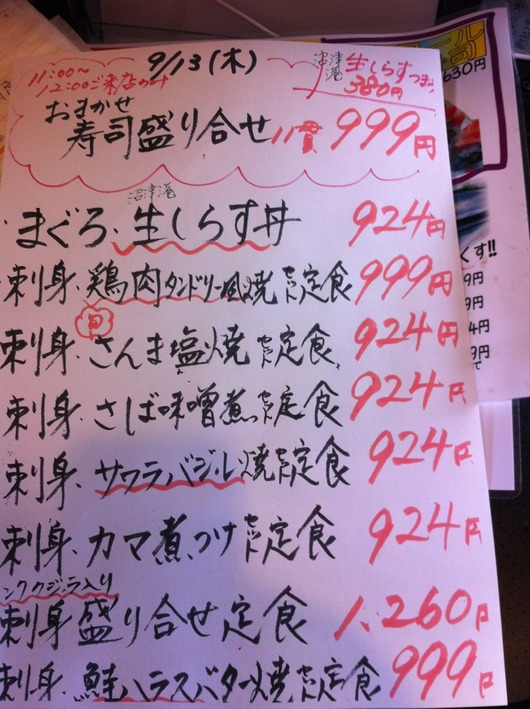 9/13(木)
11:00〜
12:00ご来店の方
沼津港
生しらすつまみ
380円
おまかせ
寿司盛り合せ 11貫 999円
630円
沼津港
まぐろ、生しらす丼 924円
刺身、鶏肉タンドリー風焼セット定食 999円
旬
刺身、さんま塩焼セット定食 924円
刺身、さば味噌煮セット定食 924円
刺身、サワラバジル焼セット定食 924円
刺身、カマ煮つけセット定食 924円
ンククジラ入り
刺身盛り合せ定食 1,260円
刺身、鮭ハラスバター焼セット定食 999円
くす!!